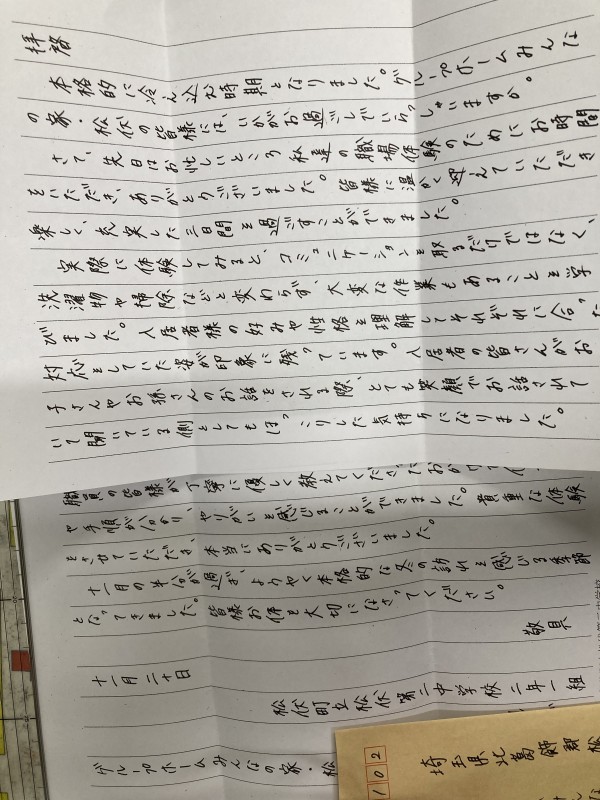 拝啓
本格的に冷え込む時期となりました。グループホームみんな
の家・松伏の皆様には、いかがお過ごしでいらっしゃいますか。
さて、先日はお忙しいところ私達の職場体験のためにお時間
をいただき、ありがとうございました。皆様に温かく迎えていただき
楽しく、充実した三日間を過ごすことができました。
実際に体験してみると、コミュニケーションを取るだけではなく、
洗濯物や掃除などと変わらず、大変な作業もあることを学
びました。入居者様の好みや性格を理解してそれぞれに合った
対応をしていた姿が印象に残っています。入居者の皆さんがお
子さんやお孫さんのお話をされる際、とても笑顔でお話されて
いて聞いている側としてもほっこりした気持ちになりました。
職員の皆様が丁寧に優しく教えてくださったおかげで
や手順が分かり、やりがいを感じることができました。貴重な体験
をさせていただき、本当にありがとうございました。
十一月の半分が過ぎ、ようやく本格的な冬の訪れを感じる季節
となってきました。皆様お体を大切になさってください。
敬具
十一月二十日
松伏町立松伏第二中学校 二年一組
グループホームみんなの家・松
102
埼玉県北葛飾郡松